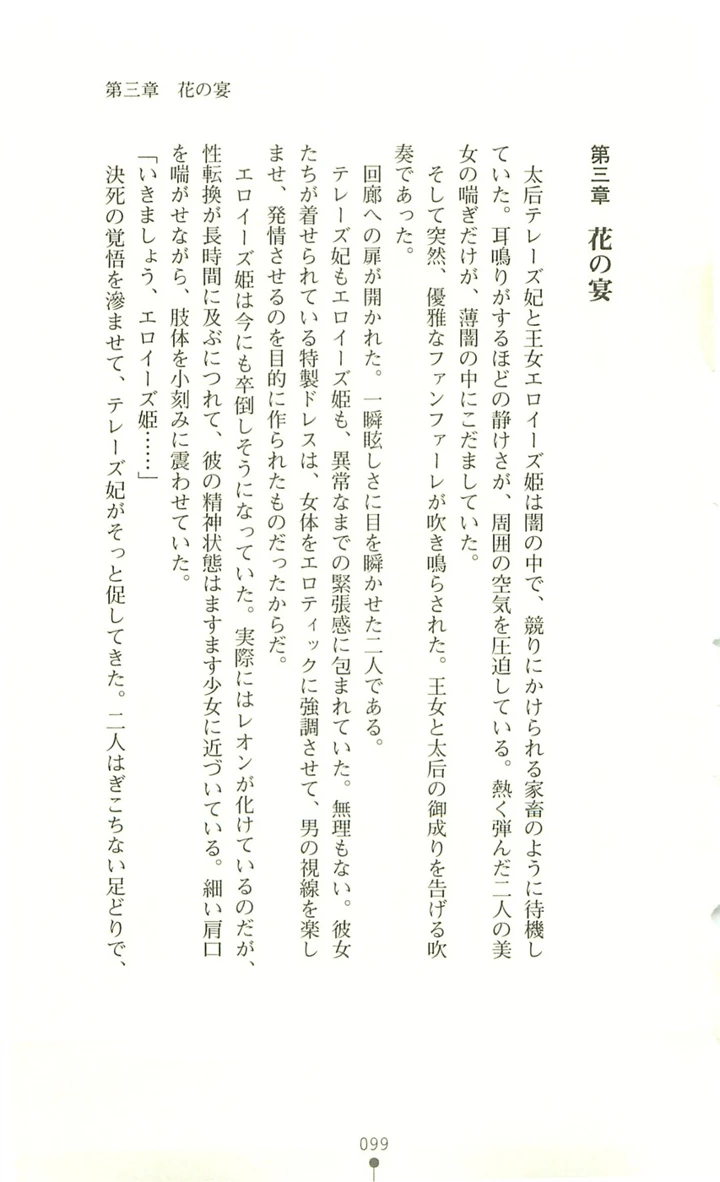 第三章　花の宴
第三章　花の宴
　太后テレーズ妃と王女エロイーズ姫は闇の中で、競りにかけられる家畜のように待機し
ていた。耳鳴りがするほどの静けさが、周囲の空気を圧迫している。熱く弾んだ二人の美
女の喘ぎだけが、薄闇の中にこだましていた。
　そして突然、優雅なファンファーレが吹き鳴らされた。王女と太后の御成りを告げる吹
奏であった。
　回廊への扉が開かれた。一瞬眩しさに目を瞬かせた二人である。
　テレーズ妃もエロイーズ姫も、異常なまでの緊張感に包まれていた。無理もない。彼女
たちが着せられている特製ドレスは、女体をエロティックに強調させて、男の視線を楽し
ませ、発情させるのを目的に作られたものだったからだ。
　エロイーズ姫は今にも卒倒しそうになっていた。実際にはレオンが化けているのだが、
性転換が長時間に及ぶにつれて、彼の精神状態はますます少女に近づいている。細い肩口
を喘がせながら、肢体を小刻みに震わせていた。
「いきましょう、エロイーズ姫……」
　決死の覚悟を滲ませて、テレーズ妃がそっと促してきた。二人はぎこちない足どりで、
099